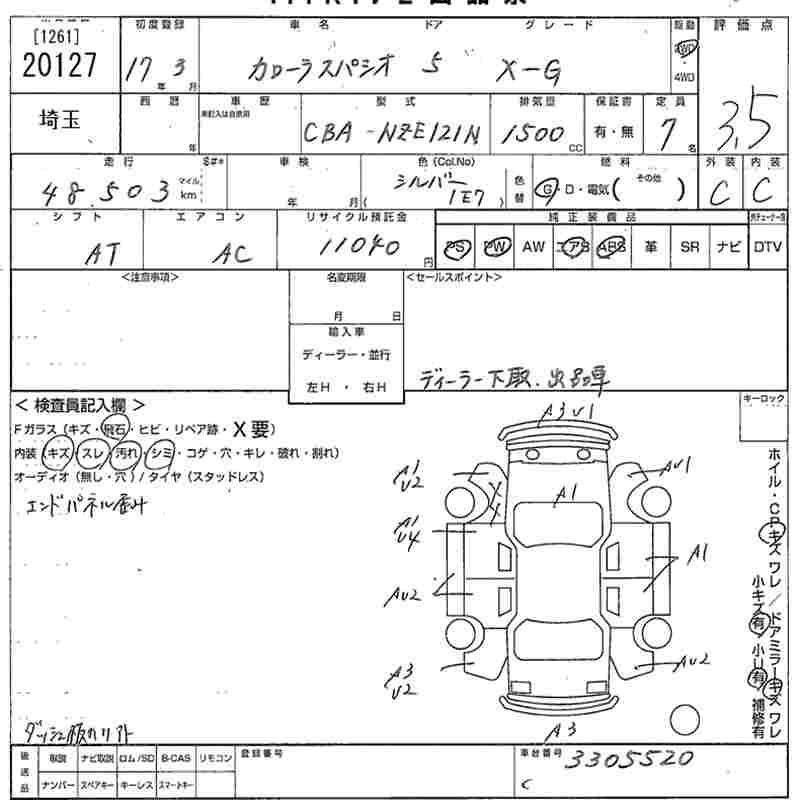 [1261]
20127
埼玉
初度登録
17 年 3 月
車名
カローラスパシオ
ドア
5
グレード
X-G
駆動
2WD
4WD
評価点
3.5
西暦
年
車歴
未記入は自家用
型式
CBA-NZE121N
排気量
1500 CC
保証書
有・無
定員
7 名
走行 S#*
48,503 マイル km
車検
年 月
色(Col.No)
シルバー
( 1E7 )
色替
燃料
G・D・電気( その他 )
外装
C
内装
C
シフト
AT
エアコン
AC
リサイクル預託金
11040 円
純正装備品
PS PW AW エアB ABS 革 SR ナビ
DTV
<注意事項>
名変期限
月 日
輸入車
ディーラー・並行
左H ・ 右H
<セールスポイント>
ディーラー下取.出品車
< 検査員記入欄 >
Fガラス(キズ・飛石・ヒビ・リペア跡・X要)
内装(キズ・スレ・汚れ・シミ・コゲ・穴・キレ・破れ・割れ)
オーディオ(無し・穴)/タイヤ(スタッドレス)
エンドパネル歪み
キーロック
A3U1
A1
U2
X
X
A1
AU1
A1
U4
A1
AU2
A3
U2
AU2
A3
ホイル・CPキズワレ/ドアミラーキズワレ
小キズ有,小U有,補修有
後送品
取説 ナビ取説 ロム/SD B-CAS リモコン
ナンバー スペアキー キーレス スマートキー
登録番号
車台番号
3305520